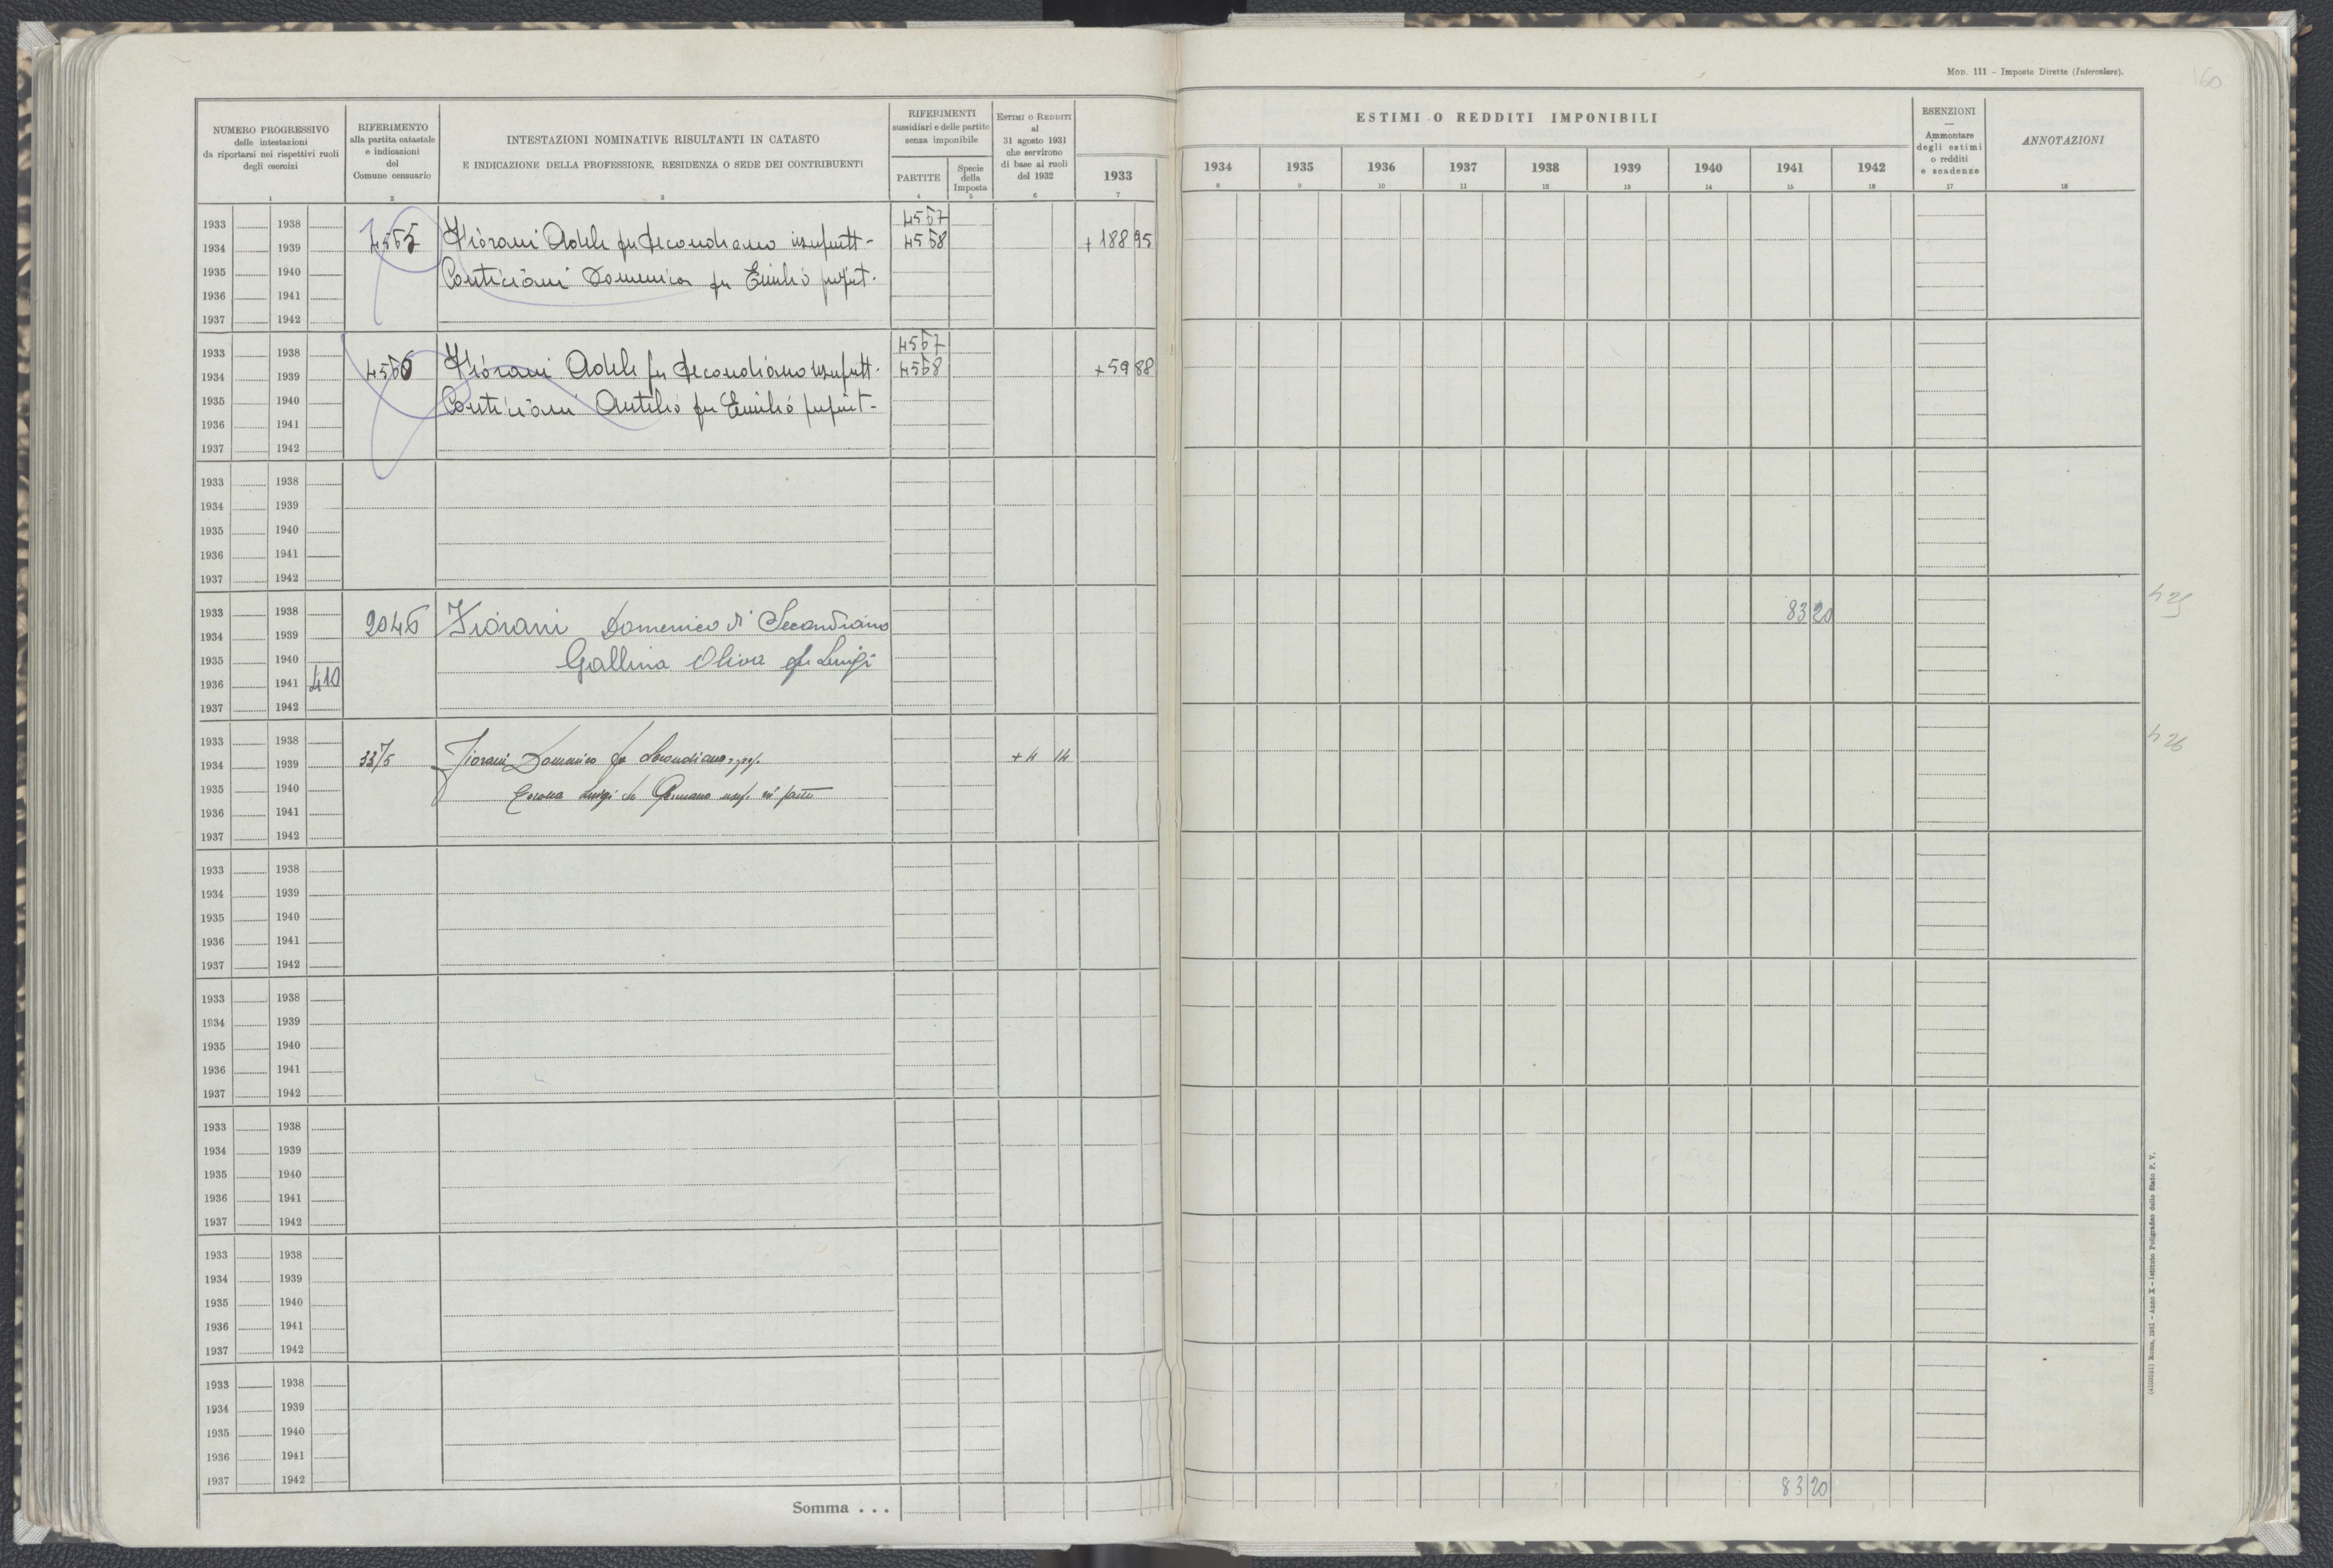 MOD. 111 – Imposte Dirette (Intercalare).
60
NUMERO PROGRESSIVO
delle intestazioni
da riportarsi nei rispettivi ruoli
degli esercizi
1
RIFERIMENTO
alla partita catastale
e indicazioni
del
Comune censuario
2
INTESTAZIONI NOMINATIVE RISULTANTI IN CATASTO
E INDICAZIONE DELLA PROFESSIONE, RESIDENZA O SEDE DEI CONTRIBUENTI
3
RIFERIMENTI
sussidiari e delle partite
senza imponibile
PARTITE
4
Specie
della
Imposta
5
ESTIMI O REDDITI
al
31 agosto 1931
che servirono
di base ai ruoli
del 1932
6
1933
7
ESTIMI O REDDITI IMPONIBILI
1934 1935 1936 1937 1938 1939 1940 1941 1942
8 9 10 11 12 13 14 15 16
ESENZIONI
—
Ammontare
degli estimi
o redditi
e scadenze
17
ANNOTAZIONI
18
1933 1938 4557
1934 1939 4555 Fiorani Adele fu Secondiano usufrutt- 4558 +188 95
1935 1940 Conticiani Domenica fu Emilio
1936 1941
1937 1942
1933 1938 4557
1934 1939 4556 Fiorani Adele fu Secondiano usufrutt. 4558 +59 88
1935 1940 Conticiani Attilio fu Emilio
1936 1941
1937 1942
1933 1938
1934 1939
1935 1940
1936 1941
1937 1942
1933 1938 2046 Fiorani Domenico di Secondiano 83 20 425
1934 1939
1935 1940 Gallina Oliva fu Luigi
1936 1941 410
1937 1942
1933 1938 426
1934 1939 3375 Fiorani Domenico fu Secondiano +4 14
1935 1940 Luigi di Germano usuf. in parte
1936 1941
1937 1942
1933 1938
1934 1939
1935 1940
1936 1941
1937 1942
1933 1938
1934 1939
1935 1940
1936 1941
1937 1942
1933 1938
1934 1939
1935 1940
1936 1941
1937 1942
1933 1938
1934 1939
1935 1940
1936 1941
1937 1942
1933 1938
1934 1939
1935 1940
1936 1941
1937 1942
Somma . . . 83 20
Roma, 1931 – Anno X – Istituto Poligrafico dello Stato P. V.